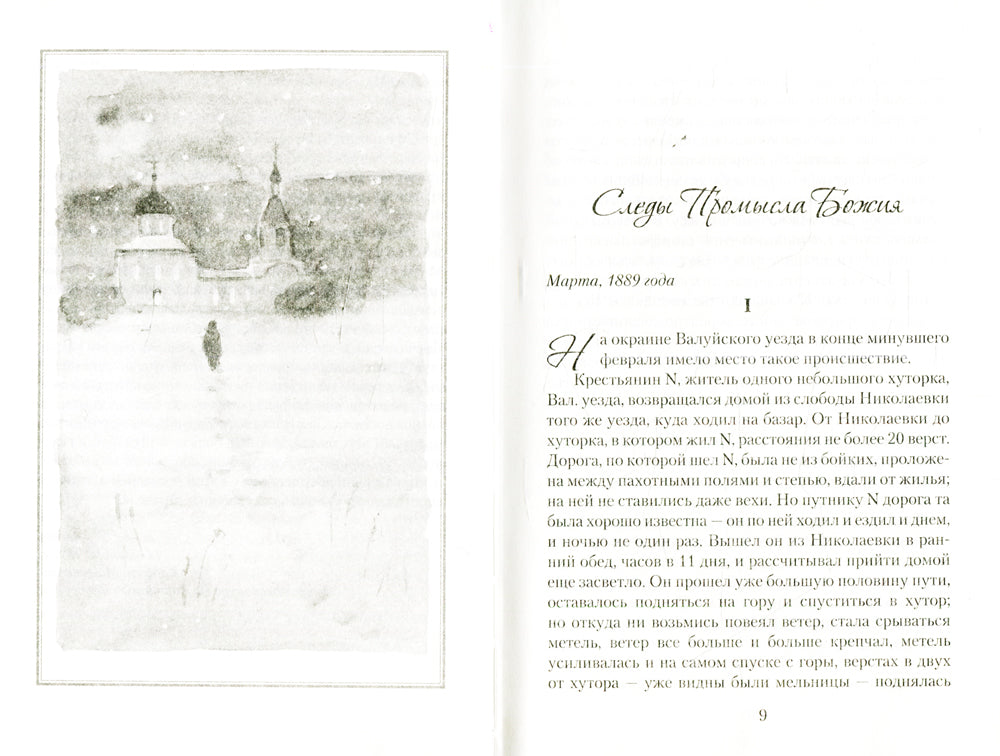 Следы Промысла Божия
Марта, 1889 года
I
На окраине Валуйского уезда в конце минувшего
февраля имело место такое происшествие.
Крестьянин N, житель одного небольшого хуторка,
Вал. уезда, возвращался домой из слободы Николаевки
того же уезда, куда ходил на базар. От Николаевки до
хуторка, в котором жил N, расстояния не более 20 верст.
Дорога, по которой шел N, была не из бойких, проложе-
на между пахотными полями и степью, вдали от жилья;
на ней не ставились даже вехи. Но путнику N дорога та
была хорошо известна — он по ней ходил и ездил и днем,
и ночью не один раз. Вышел он из Николаевки в ран-
ний обед, часов в 11 дня, и рассчитывал прийти домой
еще засветло. Он прошел уже большую половину пути,
оставалось подняться на гору и спуститься в хутор;
но откуда ни возьмись повеял ветер, стала срываться
метель, ветер все больше и больше крепчал, метель
усиливалась и на самом спуске с горы, верстах в двух
от хутора — уже видны были мельницы — поднялась
9